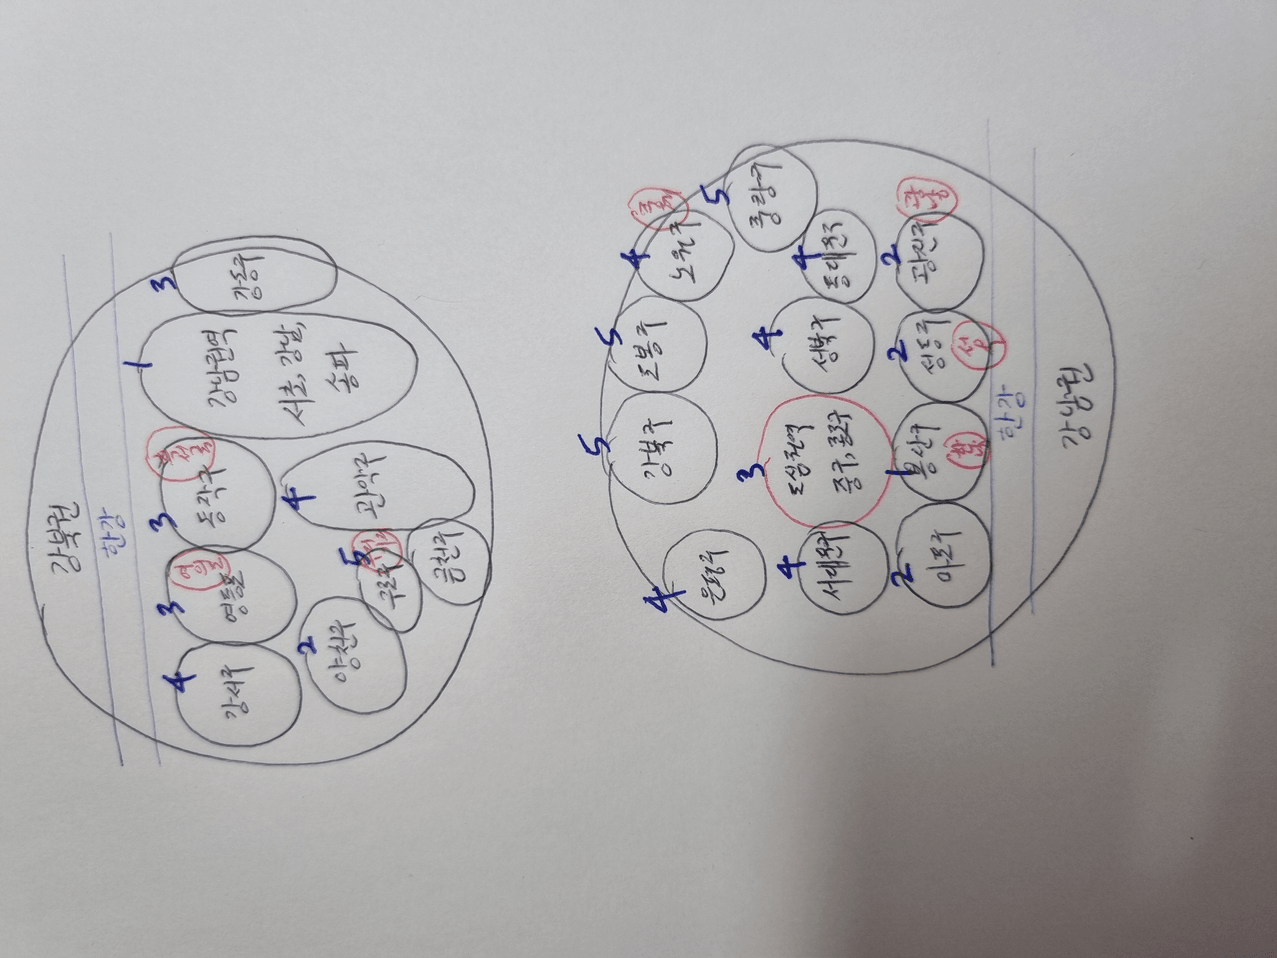 강북권
한강
3
강동구
1
강남권역
서초, 강남,
송파
3
동작구
4
관악구
3
영등포
5
구로구
금천구
4
강서구
2
양천구
5
중랑구
4
노원구
4
동대문구
2
광진구
5
도봉구
4
성북구
2
성동구
5
강북구
3
도심권역
중구, 종로구
1
용산구
4
은평구
4
서대문구
2
마포구
한강
강남권